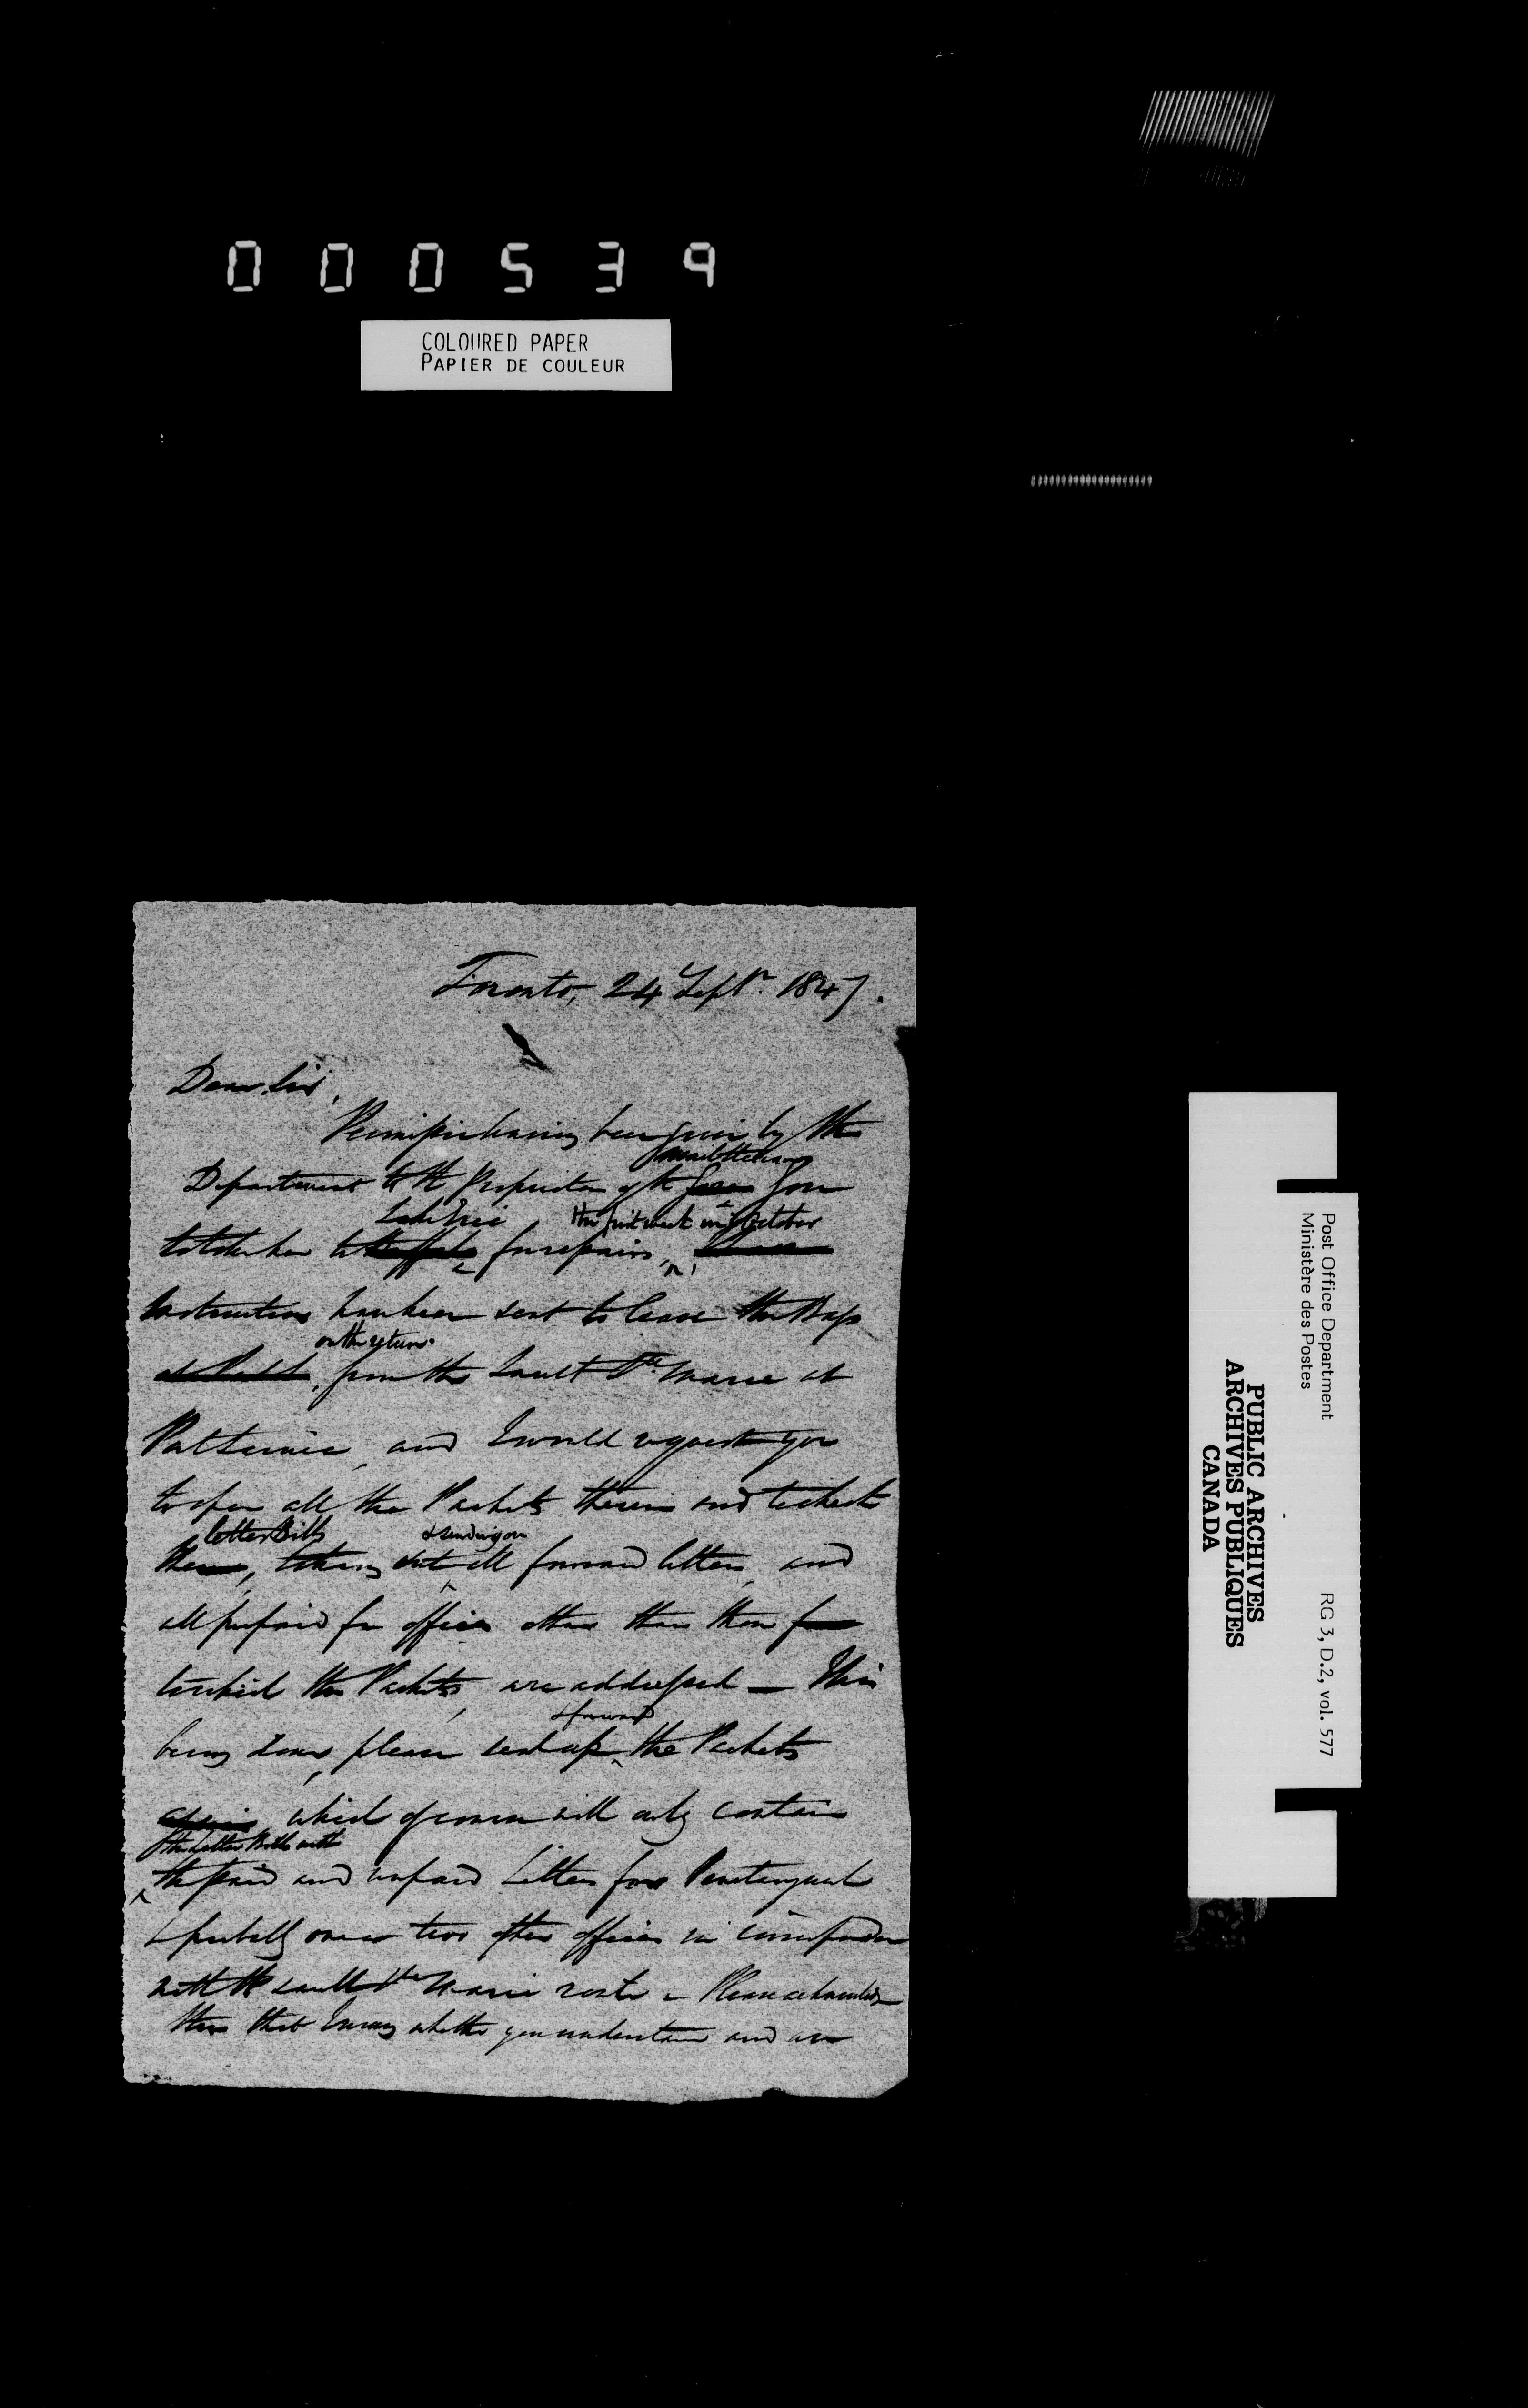 000539
COLOURED PAPER
PAPIER DE COULEUR
Toronto, 24 Septr. 1847.
Dear Sir,
Permission having been given by the
Department to the Proprietor of the
Lake Erie the first week in October
to take her to for repairs,
Instructions have been sent to leave the Bags
on the return
from the Sault Ste Marie at
Port Sarnia, and I would request you
to open all the Packets therein and to check
letter Bills & sending on
the, taking out all forward letters, and
all prepaid for offices other than those
to which the Packets are addressed — This
& forward
being done, please seal up the Packets
again, which of course will only contain
the Letter Bills with
the paid and unpaid Letters for Penetanguish
& probably one or two other offices in
with the Sault Ste Marie route – Please
this that I may whether you understand and are
Post Office Department
Ministère des Postes
RG 3, D.2, vol. 577
PUBLIC ARCHIVES
ARCHIVES PUBLIQUES
CANADA